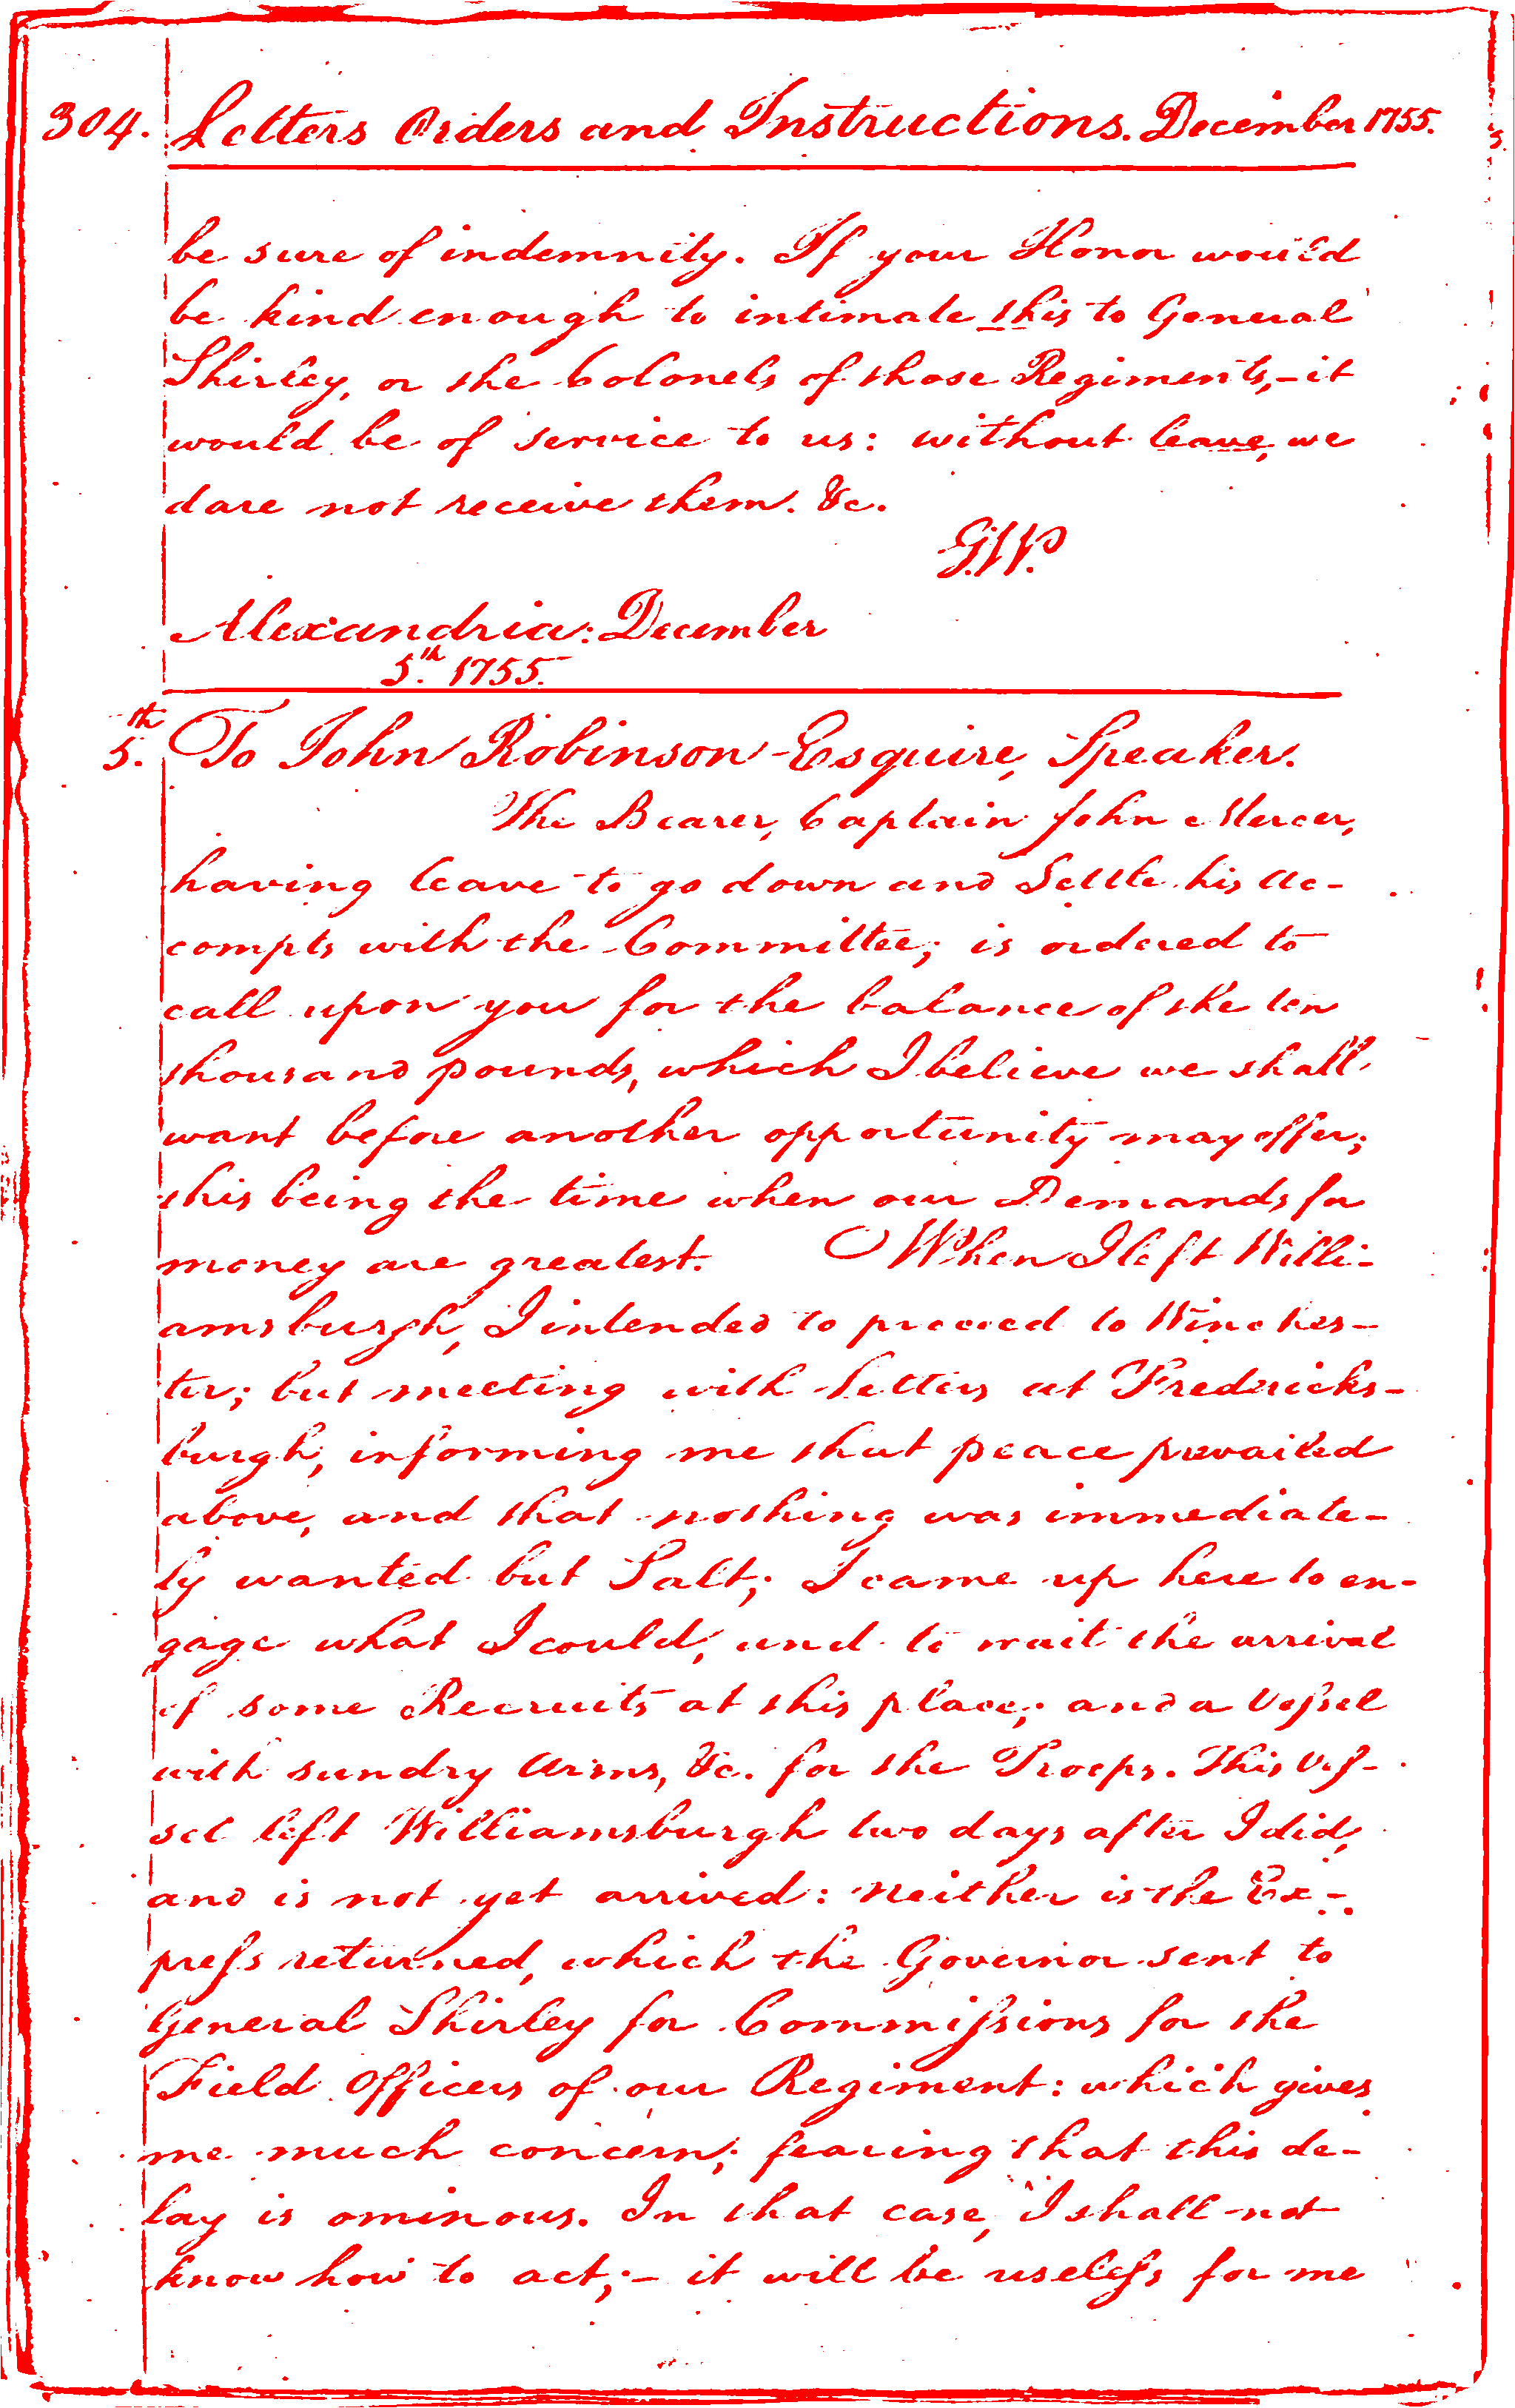 304. Letters Orders and Instructions. December 1755.
be sure of indemnity. If your Honor would
be kind enough to intimate this to General
Shirley, or the Colonels of those Regiments,-it
would be of service to us: without leave, we
dare not receive them. &c.
G.W.
Alexandria: December
5.th 1755.
5.th To John Robinson Esquire, Speaker.
The Bearer, Captain John Mercer,
having leave to go down and Settle his Ac-
compts with the Committee; is ordered to
call upon you for the balance of the ten
thousand pounds, which I believe we shall
want before another opportunity may offer;
this being the time when our Demands for
money are greatest. When I left Willi-
amsburgh, I intended to proceed to Winches-
ter; but meeting with Letters at Fredericks-
burgh, informing me that peace prevailed
above, and that nothing was immediate-
ly wanted but Salt; I came up here to en-
gage what I could, and to wait the arrival
of some Recruits at this place; and a Vessel
with sundry Arms, &c. for the Troops. This Ves-
sel left Williamsburgh two days after I did,
and is not yet arrived: neither is the Ex-
press returned, which the Governor sent to
General Shirley for Commissions for the
Field Officers of our Regiment: which gives
me much concern; fearing that this de-
lay is ominous. In that case, I shall not
know how to act;- it will be useless for me